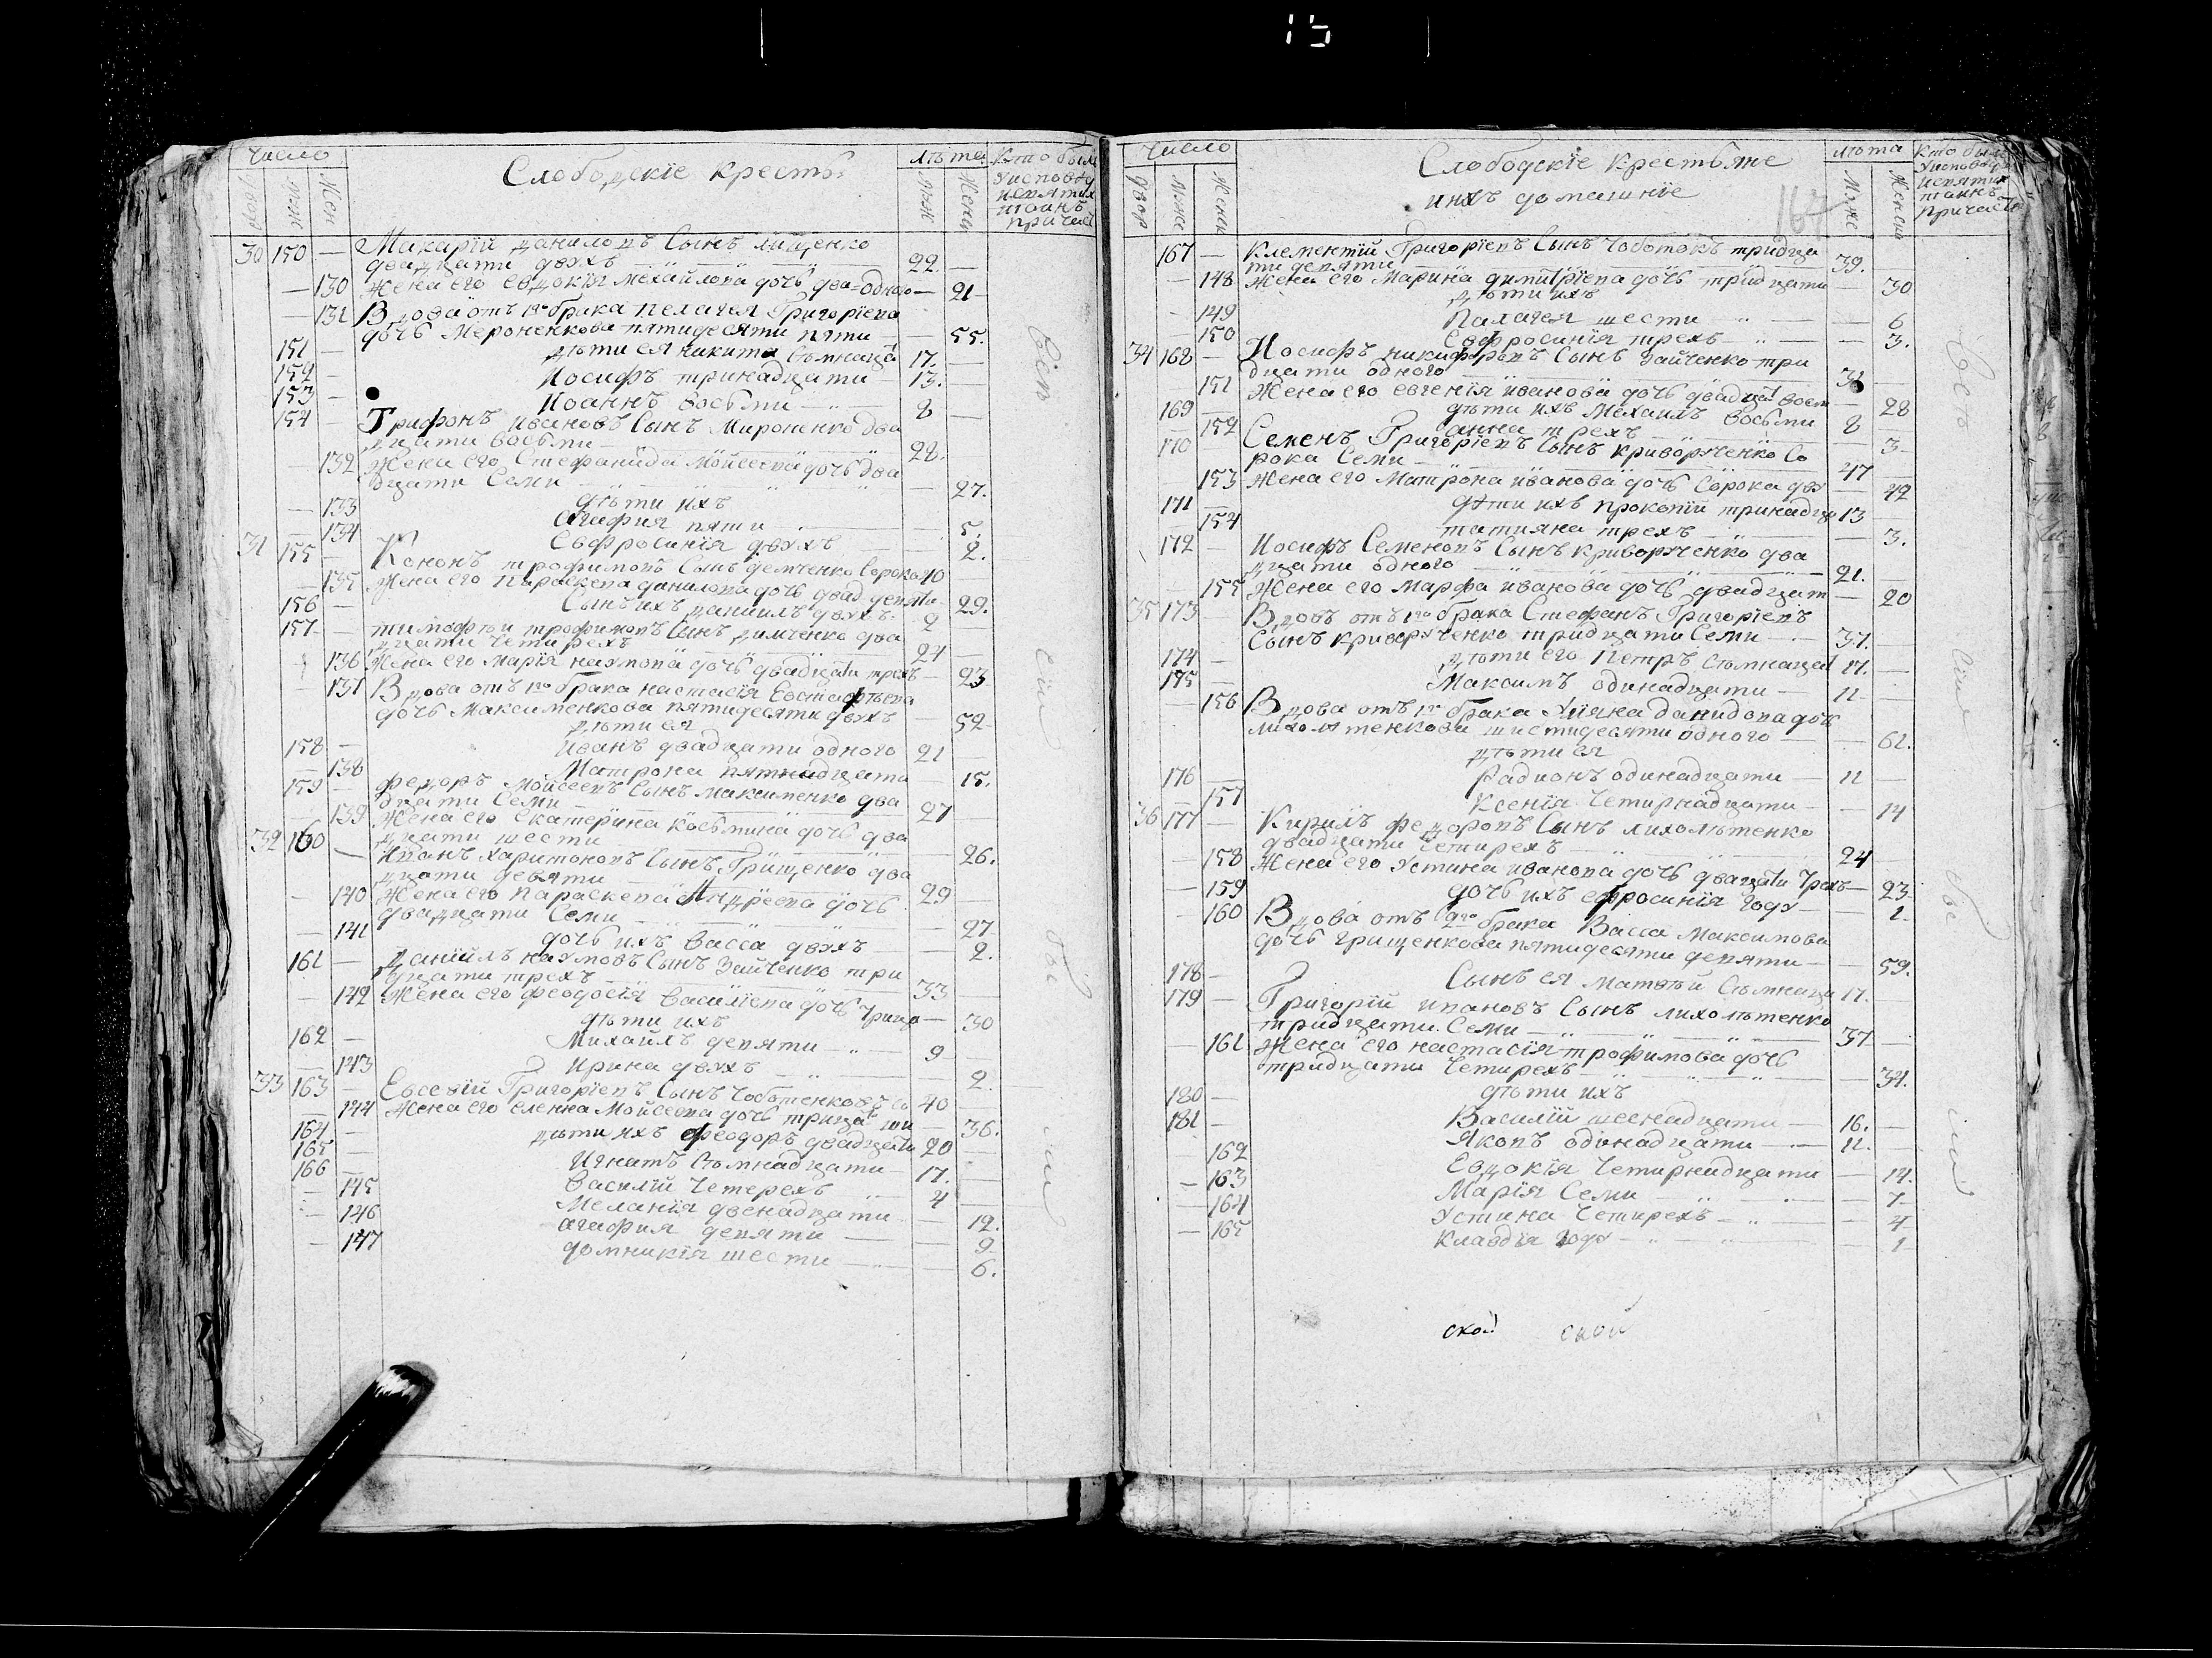 15
Число
двор
муж
Жен
Слободскіе кресть
лѣта
Муж
Жени
Кто был
Уисповѣд
исвятих
итаинъ
причас
30 150 — Макарій даниловъ Сынъ лищенко
двадцати двухъ 22. —
— 130 Жена его евдокія михайлова дочь два=одного — 21
— 131 Вдова отъ 1го брака пелагея Григоріева
дочь Мероненкова пятидесяти пяти — 55.
151 — дѣти ея никита сѣмнаца 17. —
152 — Иосифъ тринадцати 13. —
153 — Иоаннъ восьми 8 —
154 — Трифонъ ивановъ Сынъ Мироненко два
дцати восьми 28.
— 132 Жена его Стефанида Мойсеева дочь два
дцати Семи — 27.
дѣти ихъ
— 133 Агафия пяти 5.
— 134 Евфросинія двухъ 2.
31 155 — Кононъ трофимовъ Сынъ демченко Сорока 40
— 135 Жена его параскева данилова дочь двад девяти 29.
156 — Сынъ ихъ даниилъ двухъ 2
157 — тимофѣи трофимовъ Сынъ димченко два
дцати четирехъ 24
— 136 Жена его Марія наумова дочь двадцати трехъ — 23
— 137 Вдова отъ 1го брака настасія Евстафѣева
дочь Максименкова пятидесяти двухъ — 52
дѣти ея
158 — иванъ двадцати одного 21
— 138 Матрона пятнадцати — 15.
159 — федоръ Мойсеевъ Сынъ максименко два
дцати Семи 27
— 139 Жена его Екатерина Косьмина дочь два
дцати шести — 26.
32 160 — иванъ харитоновъ Сынъ Грищенко два
дцати девяти 29
— 140 Жена его параскева Андреева дочь
двадцати Семи — 27
— 141 дочь ихъ Васса двухъ — 2.
161 — даниилъ наумовъ Сынъ Зайченко три
дцати трехъ 33
— 142 Жена его феодосія Василіева дочь трицр — 30
дѣти ихъ
162 — Михайлъ девяти 9
— 143 Ирина двухъ — 2.
33 163 — Евсевій Григоріевъ Сынъ Чоботенковъ со 40
— 144 Жена его еленна Мойсеева дочь трицат ши — 36.
164 — дѣти ихъ феодоръ двадцати 20
165 — Игнатъ Сѣмнадцати 17.
166 — Василій Четерехъ 4
— 145 Меланія двенадцати — 12.
— 146 агафия девяти 9
— 147 домникія шести — 6.
Число
двор
Муж
Жени
Слободскіе Крестьяне
ихъ домашніе
167
лѣта
Муж
Женски
Кто были
Уисповѣд
исвятих
таинъ
причасти
167 — Клементій Григоріевъ Сынъ Чоботокъ тридца
ти девяти 39.
— 148 Жена его Марина димитріева дочь тридцати — 30
дѣти ихъ
— 149 Палагея шести — 6
150 Евфросинія трехъ — 3.
34 168 — Иосифъ никифоровъ Сынъ Зайченко три
дцати одного 31
— 151 Жена его евгенія иванова дочь двадцат восм — 28
169 — дѣти ихъ Михаилъ восьми 8
— 152 анна трехъ 3
170 — Семенъ Григоріевъ Сынъ криворученко Со
рока Семи 47
— 153 Жена его Матрона иванова дочь Сорока дву — 42
171 — дѣти ихъ прокопій тринадца 13 —
— 154 татияна трехъ — 3.
172 — Иосифъ Семеновъ Сынъ криворученко два
дцати одного 21.
— 155 Жена его Марфа иванова дочь двадцат — 20
35 173 — Вдовъ отъ 1го брака Стефанъ Григоріевъ
Сынъ криворученко тридцати Семи 37.
174 — дѣти его Петръ сѣмнацат 17.
175 — Максимъ одинадцати — 11 —
— 156 Вдова отъ 1го брака Уляна данидова дочь
лихолѣтенкова шистидесяти одного — 61.
дѣти ея
176 — Радионъ одинадцати — 11
— 157 Ксенія Четирнадцати — 14
36 177 — Кирилъ федоровъ Сынъ лихолѣтенко
двадцати Четирехъ 24
— 158 Жена его Устина иванова дочь двацати Трехъ — 23
— 159 дочь ихъ ефросинія году — 1
— 160 Вдова отъ 2го брака Васса Максимова
дочь грищенкова пятидесяти девяти — 59.
178 — Сынъ ея Матѣй Сѣмнаца 17.
179 — Григорій ивановъ Сынъ лихолѣтенко
тридцати Семи 37
— 161 Жена его настасія трофимова дочь
тридцати Четирехъ — 34.
дѣти ихъ
180 — Василій шеснадцати — 16.
181 — Яковъ одинадцати — 11.
— 162 Евдокія Четирнадцати — 14.
— 163 Марія Семи — 7
— 164 Устина Четирехъ — 4
— 165 Клавдія году — 1
ской ской